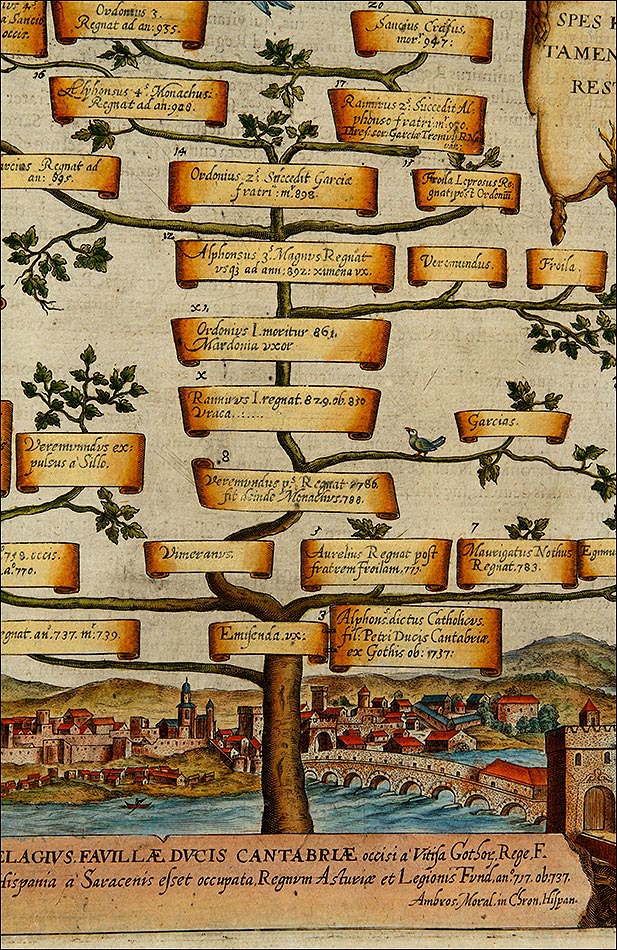 Ordonius 3.
Regnat ad an: 935.
20
Sanctius Crassus,
mor: 947:
SPES
TAMEN
REST
Sanctio
occis.
16
Alphonsus 4.s Monachus:
Regnat ad an: 928.
17
Ramirus 2.s Succedit Al-
phonso fratri: m: 950.
14
Ordonius 2.s Succedit Garciæ
fratri: m.s 898.
15
Froila Leprosus Re-
gnat: post Ordoniũ.
Garcias Regnat ad
an: 895.
12
Alphonsus 3.s Magnus Regnat
usq3 ad ann: 892: ximena ux.
Veremundus.
Froila.
x1
Ordonius I. moritur 861.
Mardonia uxor
x
Ramirus I. regnat. 829. ob. 830
Vraca......
Garcias.
Veremundus ex:
pulsus a Sillo.
8
Veremundus p.s Regnat 786.
fit deinde Monachus. 788.
758. occis.
a.o 770.
Vimeranus.
5
Aurelius Regnat post
fratrem Froilam. 775.
7
Maurigatus Nothus
Regnat. 783.
gnat. an.o 737. m.r 739.
Emisenda. ux:
3
Alphons.s dictus Catholicus.
fil: Petri Ducis Cantabriæ
ex Gothis ob: 737:
ELAGIVS. FAVILLÆ DVCIS CANTABRIÆ occisi a Vitisa Gothor, Rege, F.
Hispania a Saracenis esset occupata, Regnum Asturiæ et Legionis Fund, an.o 717. ob. 737.
Ambros. Moral. in Chron. Hispan.